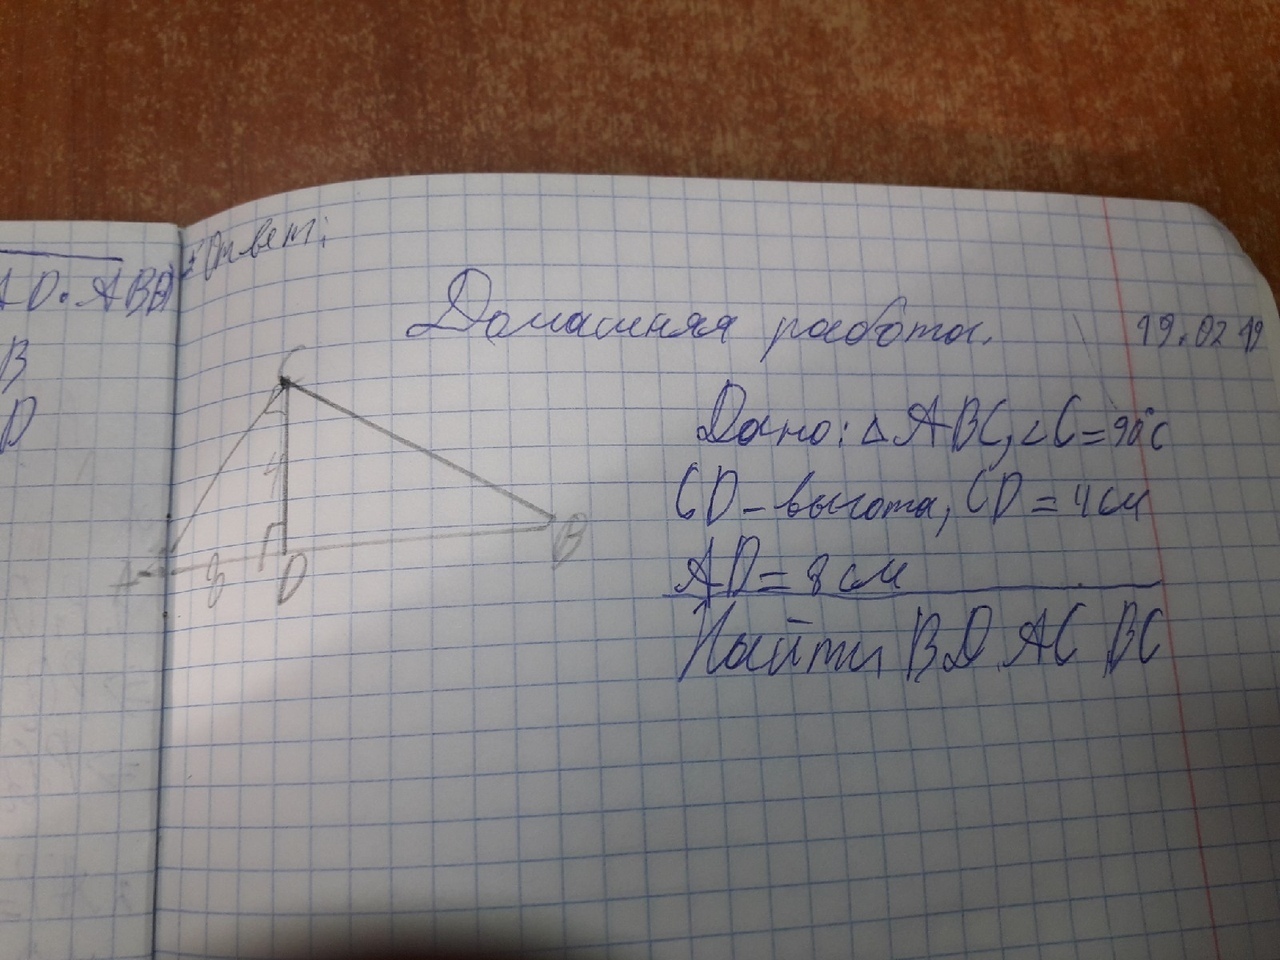 AD·AB
B
D
Ответ:
Домашняя работа.
19.02 19
Дано: △ABC, ∠C=90°C
CD-высота, CD=4см
AD=8см
Найти BD AC BC
C
4
A 8 D B